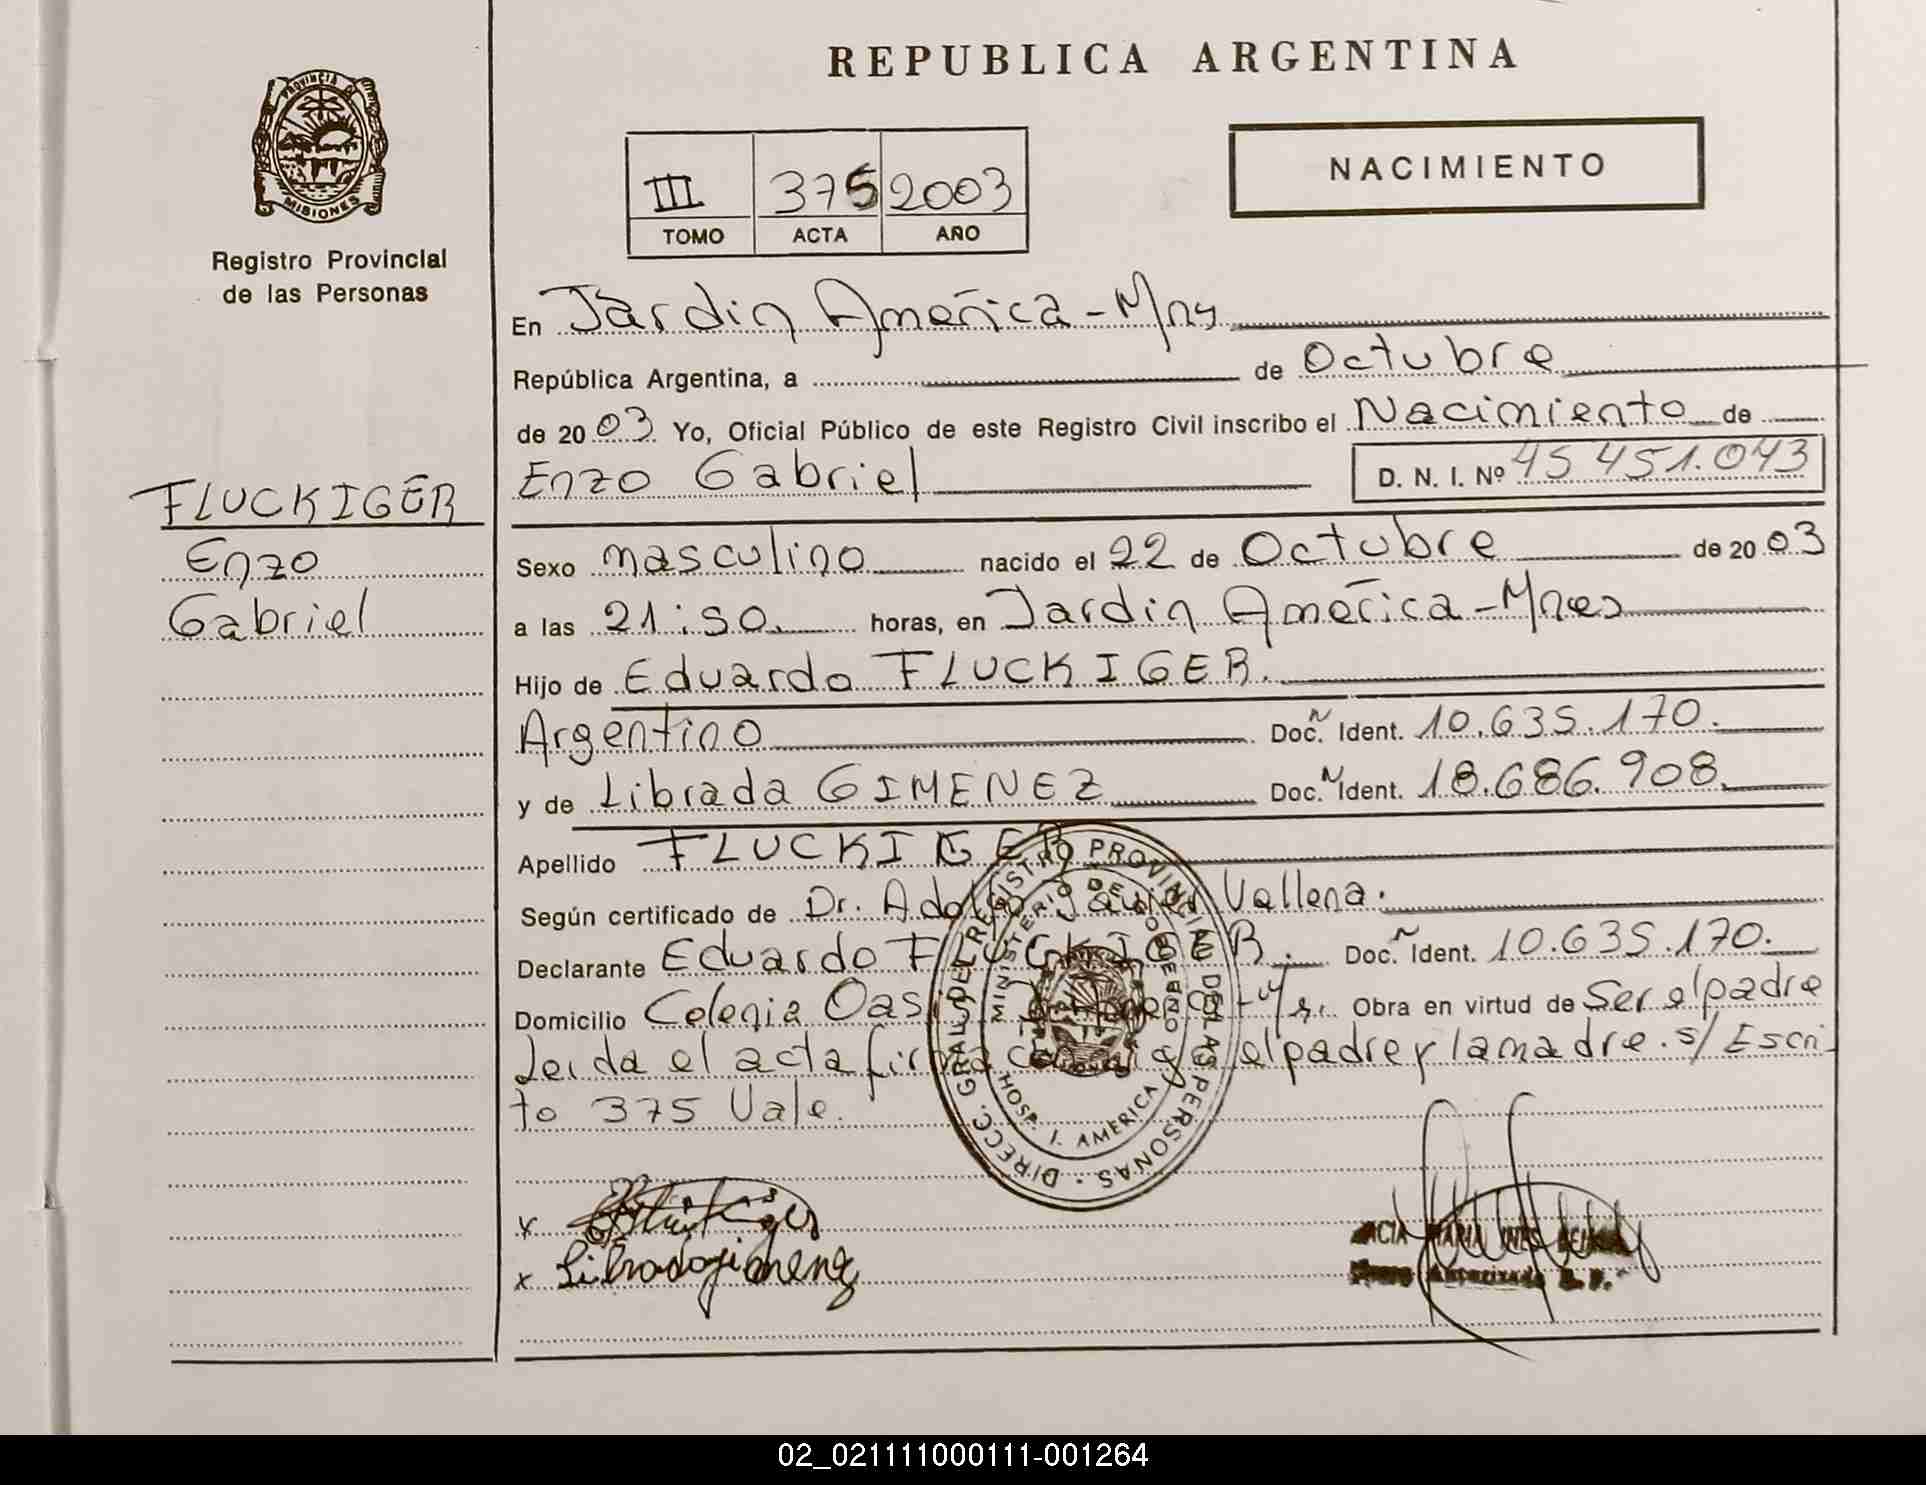 REPUBLICA ARGENTINA
PROVINCIA DE
MISIONES
Registro Provincial
de las Personas
NACIMIENTO
III 375 2003
TOMO ACTA AÑO
En Jardin América - Mns
República Argentina, a de Octubre
de 2003 Yo, Oficial Público de este Registro Civil inscribo el Nacimiento de
Enzo Gabriel D. N. I. Nº 45 451.043
FLUCKIGER
Enzo
Gabriel
Sexo masculino nacido el 22 de Octubre de 2003
a las 21:50. horas, en Jardin América - Mnes
Hijo de Eduardo FLUCKIGER.
Argentino Doc. Ident. 10.635.170.
y de Librada GIMENEZ Doc. Ident. 18.686.908.
Apellido FLUCKIGER
Según certificado de Dr. Adolfo Javier Vallena.
Declarante Eduardo FLUCKIGER. Doc. Ident. 10.635.170.
Domicilio Colonia Oasis Obra en virtud de Ser el padre
Leida el acta firma conmigo el padre y la madre. s/ Escri-
to 375 Vale.
DIRECC. GRAL. DEL REGISTRO PROVINCIAL DE LAS PERSONAS
MINISTERIO DE GOBIERNO
HOSP. J. AMERICA
x
x Librada gimenez
MARIA INES
Autorizada
02_021111000111-001264